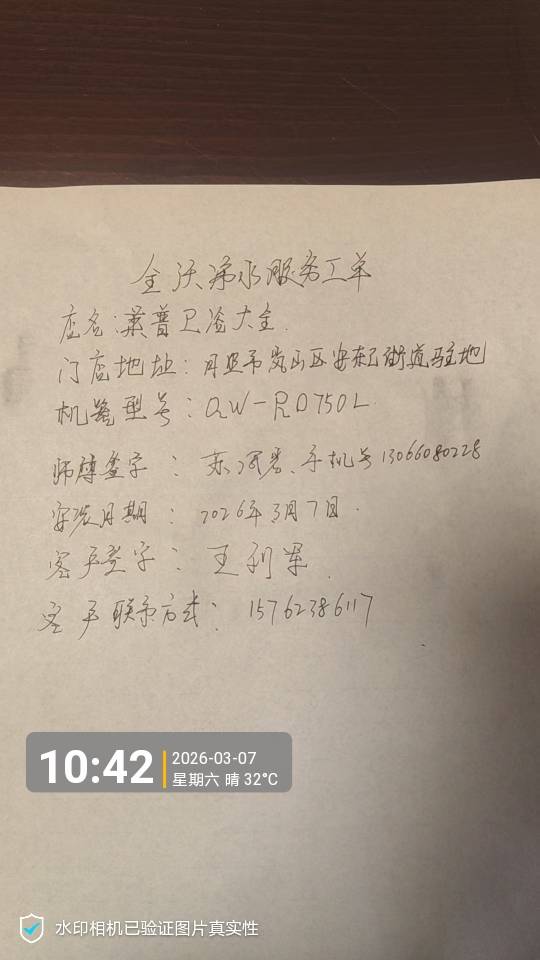 全沃净水服务工单
店名:莱普卫浴大全.
门店地址:日照市岚山区安东卫街道驻地
机器型号:QW-RO750L
师傅签字: 手机号13066080228
安装日期:2026年3月7日.
客户签字:王利军.
客户联系方式:15762386117
10:42
2026-03-07
星期六 晴 32°C
水印相机已验证图片真实性